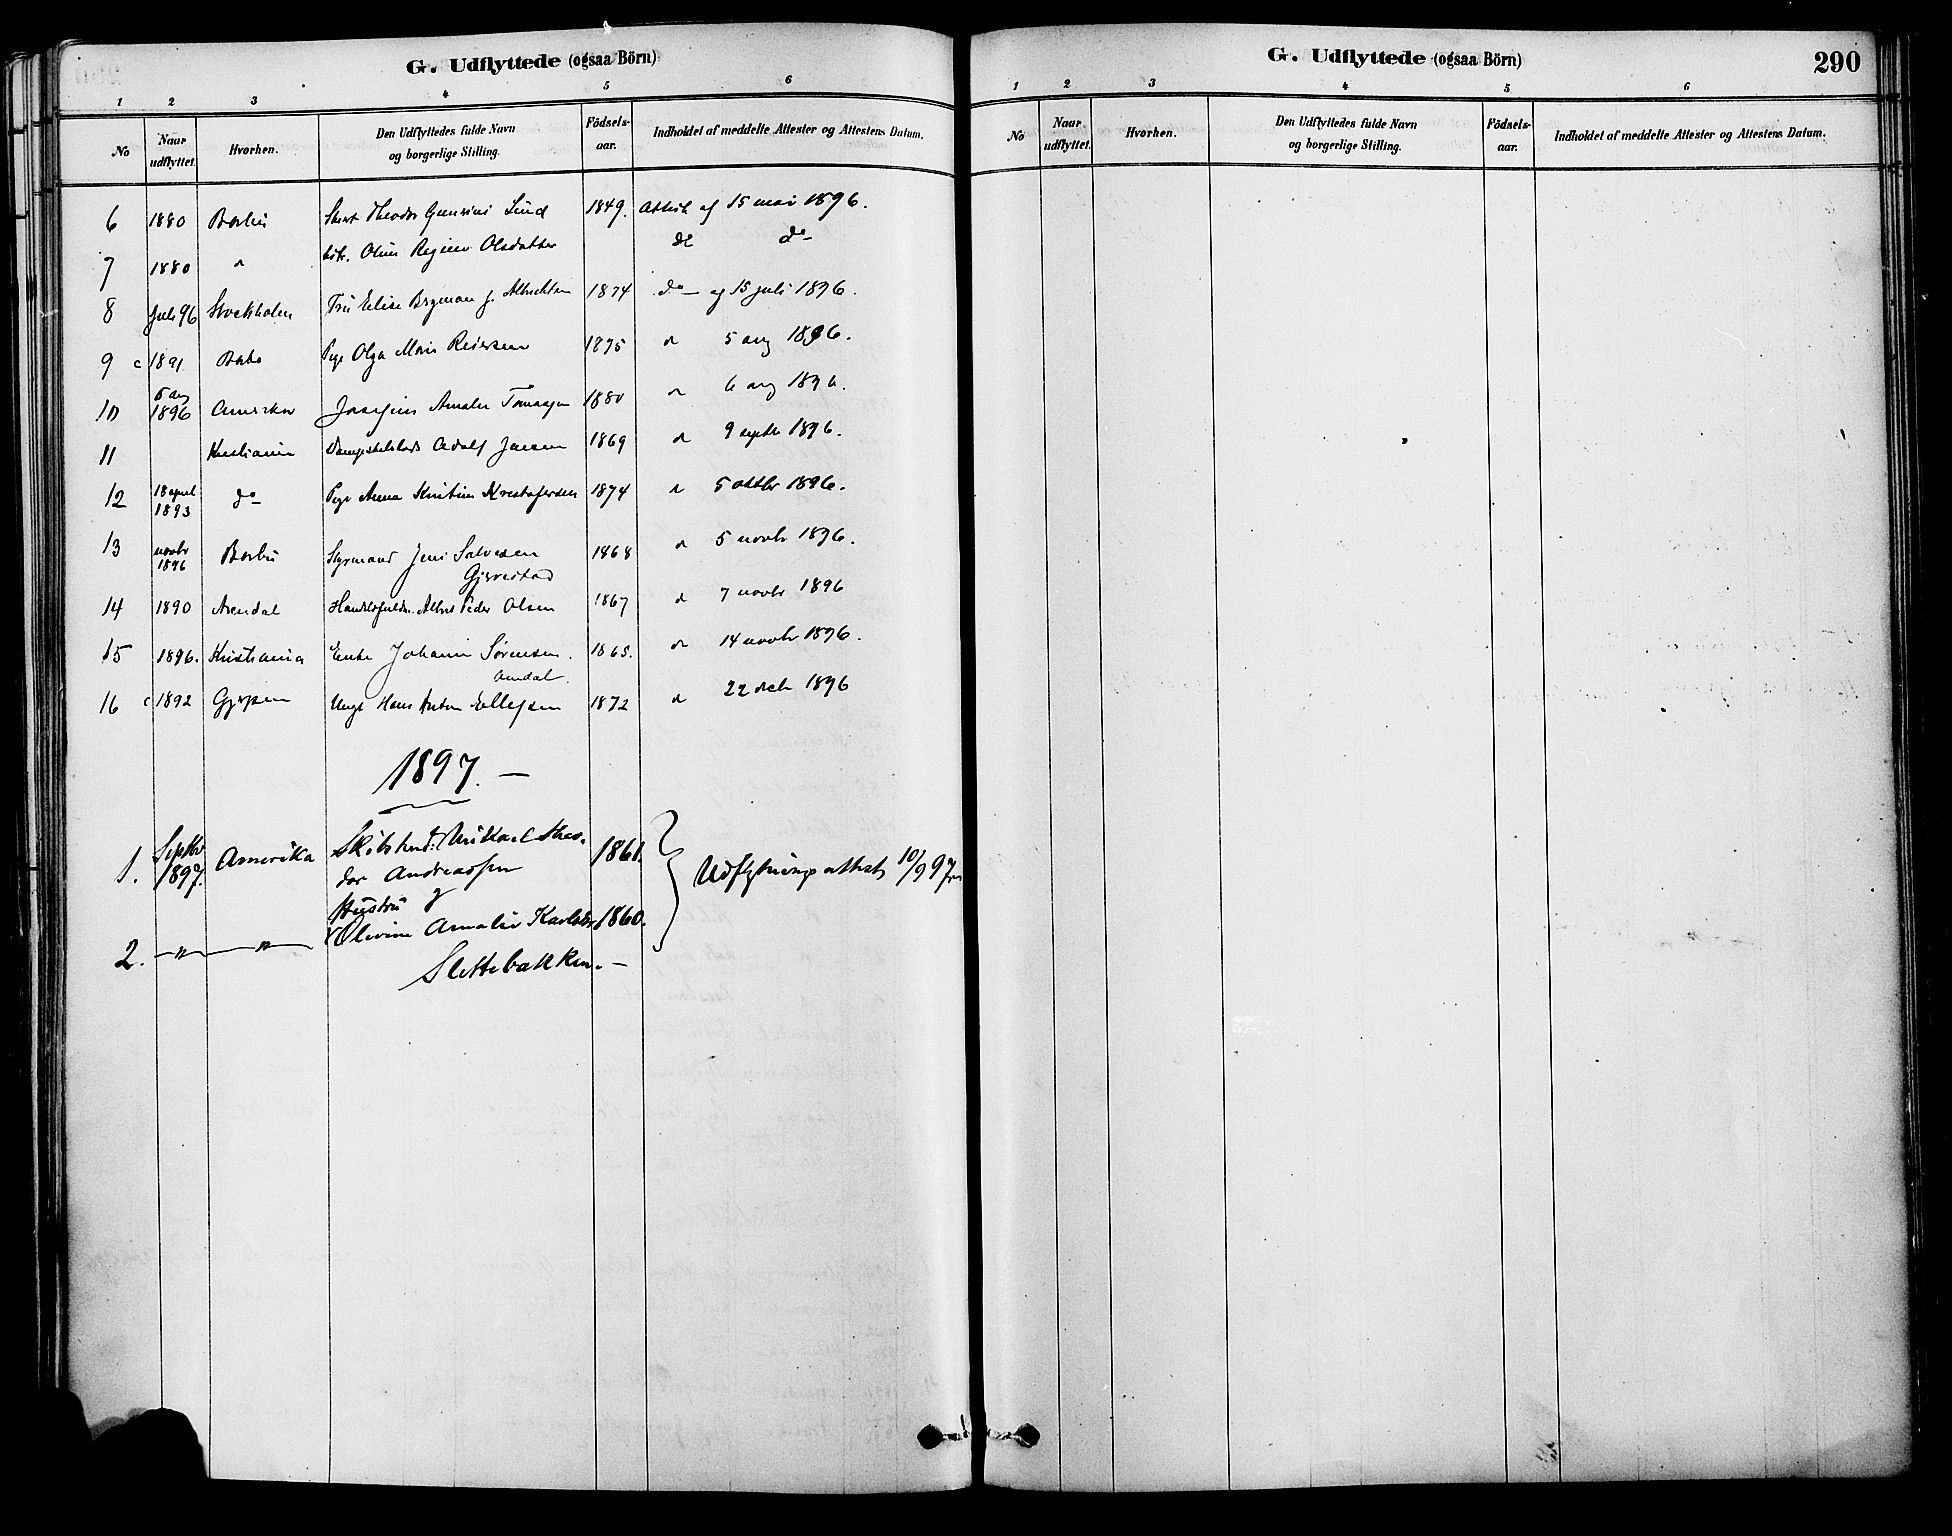 G. Udflyttede (ogsaa Börn)
1 2 3 4 5 6
No Naar udflyttet. Hvorhen. Den Udflyttedes fulde Navn og borgerlige Stilling. Födsels-aar. Indholdet af meddelte Attester og Attestens Datum.
6 1880 Barbu Theodor Lind 1849. Attest af 15 mai 1896.
7 1880 " Regine Olsdatter do do
8 Juli 96 Stockholm Fru Elise f. 1874 do af 15 juli 1896.
9 c 1891 Pige Olga Marie Reiersen 1875 " 5 aug 1896.
10 5 aug 1896 Amerika Amalie Tomassen 1880 " 6 aug 1896.
11 Kristiania Adolf Jensen 1869 " 9 septb 1896.
12 18 april 1893 do Pige Anna Kristine Kristofersen 1874 " 5 oktbr 1896.
13 novbr 1896 Barbu Styrmand Jens Salvesen 1868 " 5 novbr 1896.
Gjerestad
14 1890 Arendal Peder Olsen 1867 " 7 novbr 1896
15 1896. Kristiania Enke Johanne Sørensen. 1865. " 14 novbr 1896.
16 c 1892 Gjerpen Ungk Hans Anton Ellefsen 1872 " 22 decb 1896
1897. —
1. Septbr 1897. Amerika Mikael Theo-
dor Andreassen 1861. Udflytningsattest 10/9 97
Hustru
2. — " — " — Olivine Amalie Karlsdtr 1860.
Slettebakken. —
G. Udflyttede (ogsaa Börn)
290
1 2 3 4 5 6
No Naar udflyttet. Hvorhen. Den Udflyttedes fulde Navn og borgerlige Stilling. Födsels-aar. Indholdet af meddelte Attester og Attestens Datum.